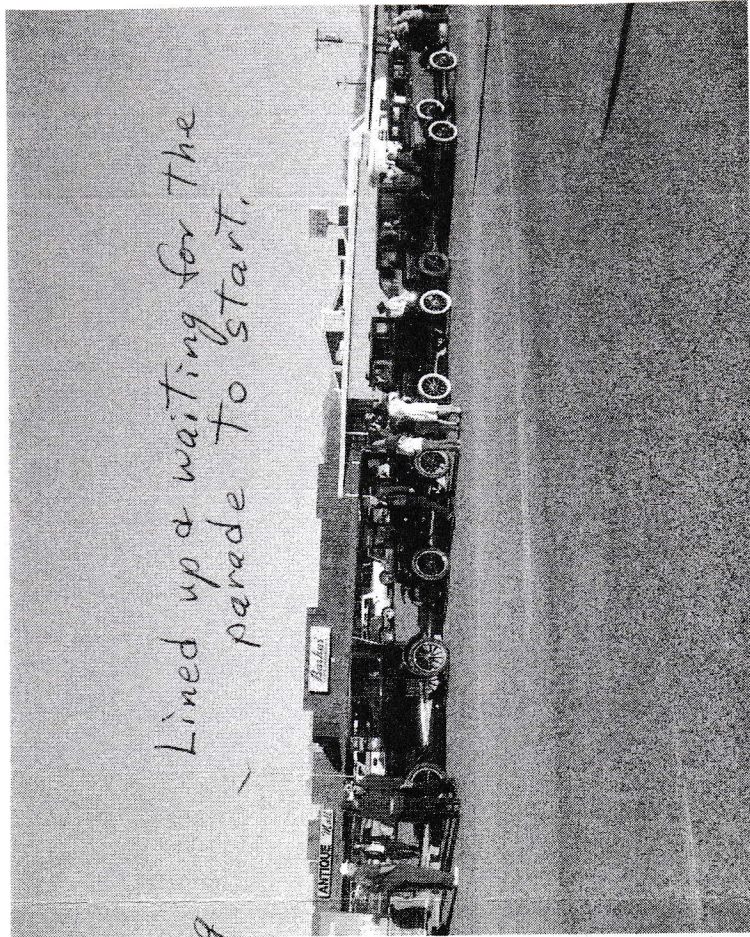 Lined up & waiting for the
parade to start.
ANTIQUE Mall